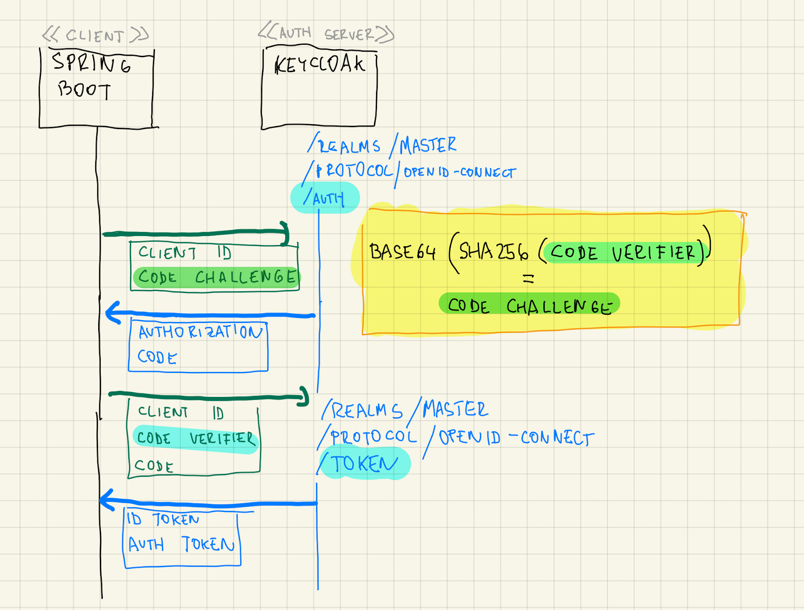 <<CLIENT>>
<<AUTH SERVER>>
SPRING
BOOT
KEYCLOAK
/REALMS /MASTER
/PROTOCOL/OPENID-CONNECT
/AUTH
CLIENT ID
CODE CHALLENGE
BASE64 (SHA256 (CODE VERIFIER))
=
CODE CHALLENGE
AUTHORIZATION
CODE
CLIENT ID
CODE VERIFIER
CODE
/REALMS /MASTER
/PROTOCOL /OPENID-CONNECT
/TOKEN
ID TOKEN
AUTH TOKEN